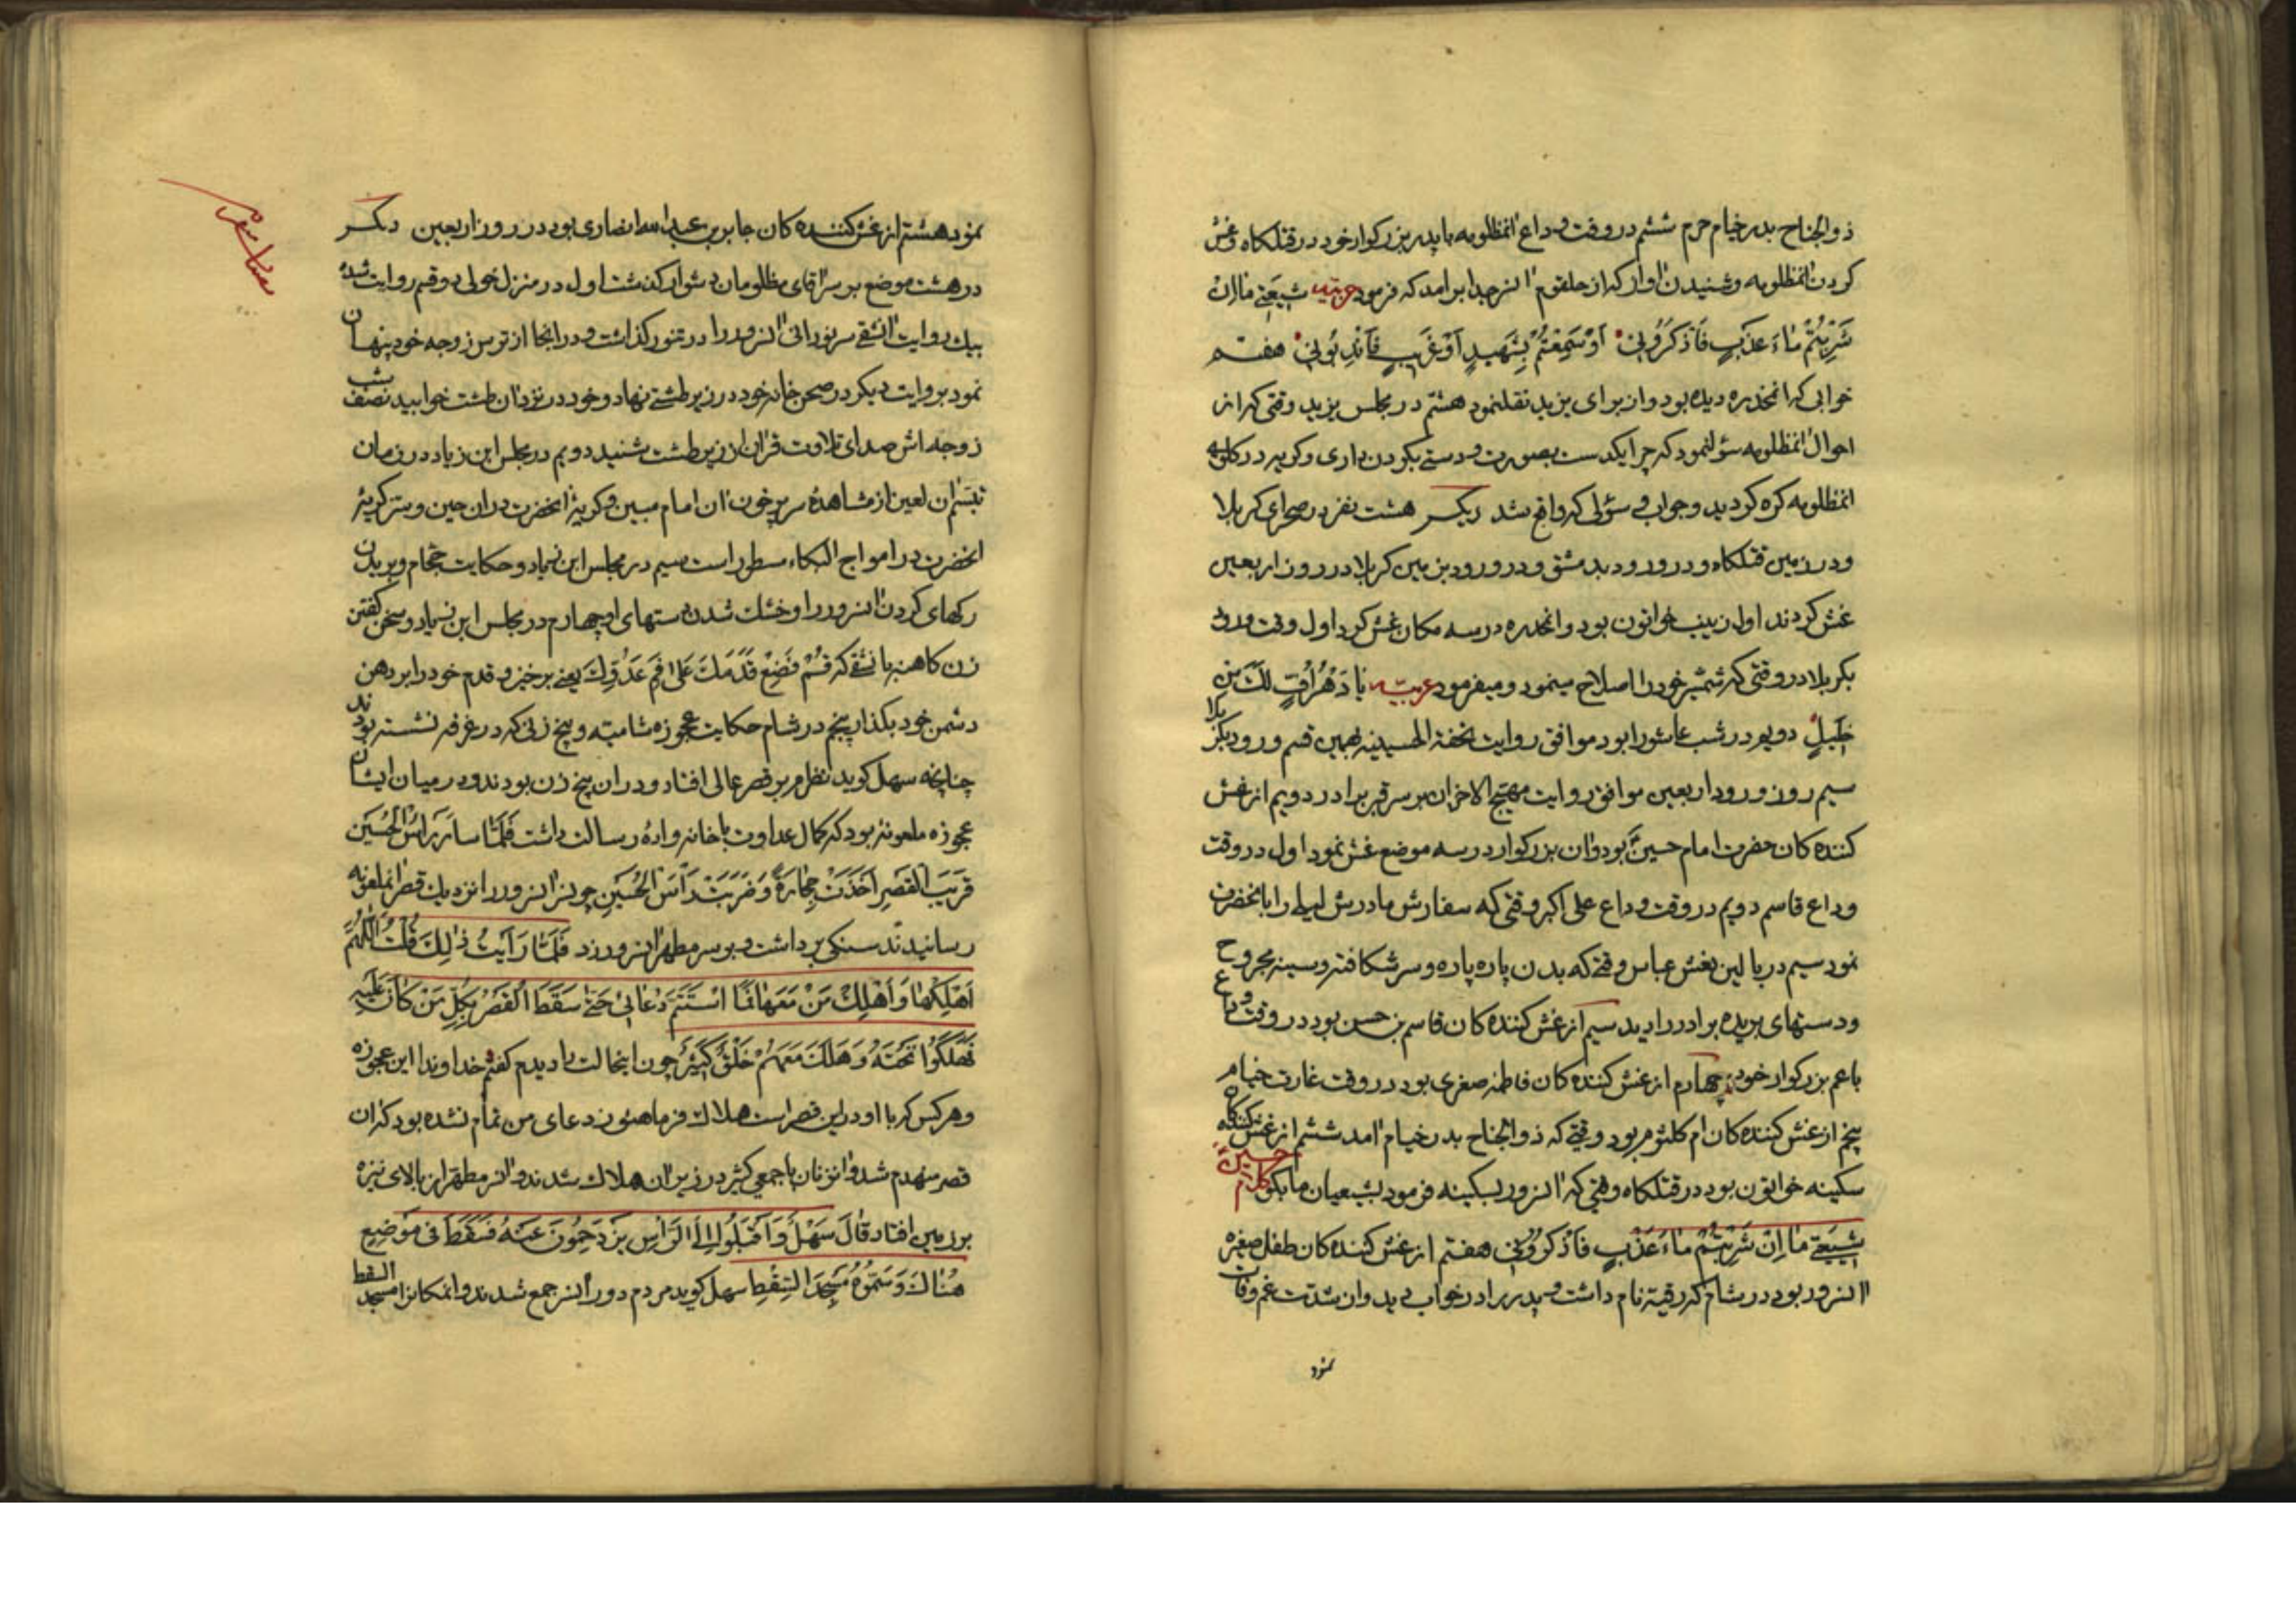 ذوالجناح بدر خیام حرم ششم در وقت وداع انمظلومه با پدر بزرکوار خود در قتلکاه و غش
کردن انمظلومه و شنیدن اواز که از حلقوم انسرجدا برامد که فرمود عربیه شیعتی ما ان
شربتم ماء عذب فاذکرونی او سمعتم بشهید او غریب فاندبونی هفتم
خوابی که انمخدره دیده بود و از برای یزید نقلنمود هشتم در مجلس یزید وقتی که از
احوال انمظلومه سؤلنمود که چرا یکدست بصورت و دستی بکردن داری و کریه در کلوی
انمظلومه کره کردید و جواب و سؤلی که واقع شد دیکر هشت نفر در صحرای کربلا
و در زمین قتلکاه و در ورود بدمشق و در ورود بزمین کربلا در روز اربعین
غش کردند اول زینب خواتون بود و انمخدره در سه مکان غش کرد اول وقت ورود
بکربلا در وقتی که شمشیر خود را اصلاح مینمود و میفرمود عربیه یا دهر اف لک من
خلیل دویم در شب عاشورا بود موافق روایت تحفة الحسینیه بهمین قسم ورود بکربلا
سیم روز ورود اربعین موافق روایت مهیج الاحزان بر سر قبر برادر دویم از غش
کننده کان حضرت امام حسین بود و ان بزرکوار در سه موضع غش نمود اول در وقت
وداع قاسم دویم در وقت وداع علی اکبر وقتی که سفارش مادرش لیلی را بانحضرت
نمود سیم در بالین نعش عباس وقتی که بدن پاره پاره و سر شکافته و سینه مجروح
و دستهای بریده برادر را دید سیم از غش کننده کان قاسم بن حسن بود در وقت وداع
با عم بزرکوار خود چهارم از غش کننده کان فاطمه صغری بود در وقت غارت خیام
پنجم از غش کننده کان ام کلثوم بود وقتی که ذوالجناح بدر خیام امد ششم از غش کننده کان
سکینه خواتون بود در قتلکاه وقتی که انسرور بسکینه فرمود بشیعیان ما بکو کلام حسین
شیعتی ما ان شربتم ماء عذب فاذکرونی هفتم از غش کننده کان طفل صغیره
انسرور بود در شام که رقیه نام داشت و پدر را در خواب دید و از شدت غم وفات
نمود
نمود هشتم از غش کننده کان جابر بن عبدالله انصاری بود در روز اربعین دیکر
در هشت موضع بر سر اقای مظلومان دشوار کذشت اول در منزل خولی دو قسم روایت شده
بیک روایت انشقی سر نورانی انسرور را در تنور کذاشت و در انجا از ترس زوجه خود پنهان
نمود بروایت دیکر در صحن خانه خود در زیر طشتی نهاد و خود در نزد ان طشت خوابید نصف شب
زوجه اش صدای تلاوت قران از زیر طشت شنید دویم در مجلس ابن زیاد در زمان
تبسم ان لعین از مشاهده سر پر خون ان امام مبین و کریه انحضرت در ان حین و سر کریه
انحضرت در امواج البکاء مسطور است سیم در مجلس ابن زیاد و حکایت حجام و بریدن
رکهای کردن انسرور را و خشک شدن دستهای او چهارم در مجلس ابن زیاد و سخن کفتن
زن کاهنه بانشقی که قم فضع قدمک علی فم عدوک یعنی برخیز و قدم خود را بر دهن
دشمن خود بکذار پنجم در شام حکایت عجوزه شامیه و پنج زنی که در غرفه نشسته بودند
چنانچه سهل کوید نظرم بر قصر عالی افتاد و در ان پنج زن بودند و در میان ایشان
عجوزه ملعونه بود که کمال عداوت با خانه واده رسالت داشت فلما سار براس الحسین
قریب القصر اخذت حجارة و ضربت راس الحسین چون سر انسرور را نزدیک قصر انملعونه
رسانیدند سنکی برداشت و بر سر مطهر انسرور زد فلما رایت ذلک قلت اللهم
اهلکها و اهلک من معها فما استتم دعائی حتی سقط القصر بکل من کان علیه
فهلکوا تحته و هلک معهم خلق کثیر چون اینحالت را دیدم کفتم خداوندا این عجوزه
و هر کس که با او در این قصر است هلاک فرما هنوز دعای من تمام نشده بود که ان
قصر منهدم شد و ان زنان با جمعی کثیر در زیر ان هلاک شدند و انسر مطهر از بالای نیزه
بر زمین افتاد قال سهل و اقبلوا الی الراس یزدحمون عنه فسقط فی موضع
هناک و سموه مسجد السقط سهل کوید مردم دور انسر جمع شدند و انمکانرا مسجد السقط